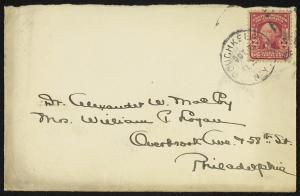 POUGHKEE
N.Y.
Dr. Alexander W. MacCoy
Mrs. William P. Logan
Overbrook Ave. & 58th St.
Philadelphia